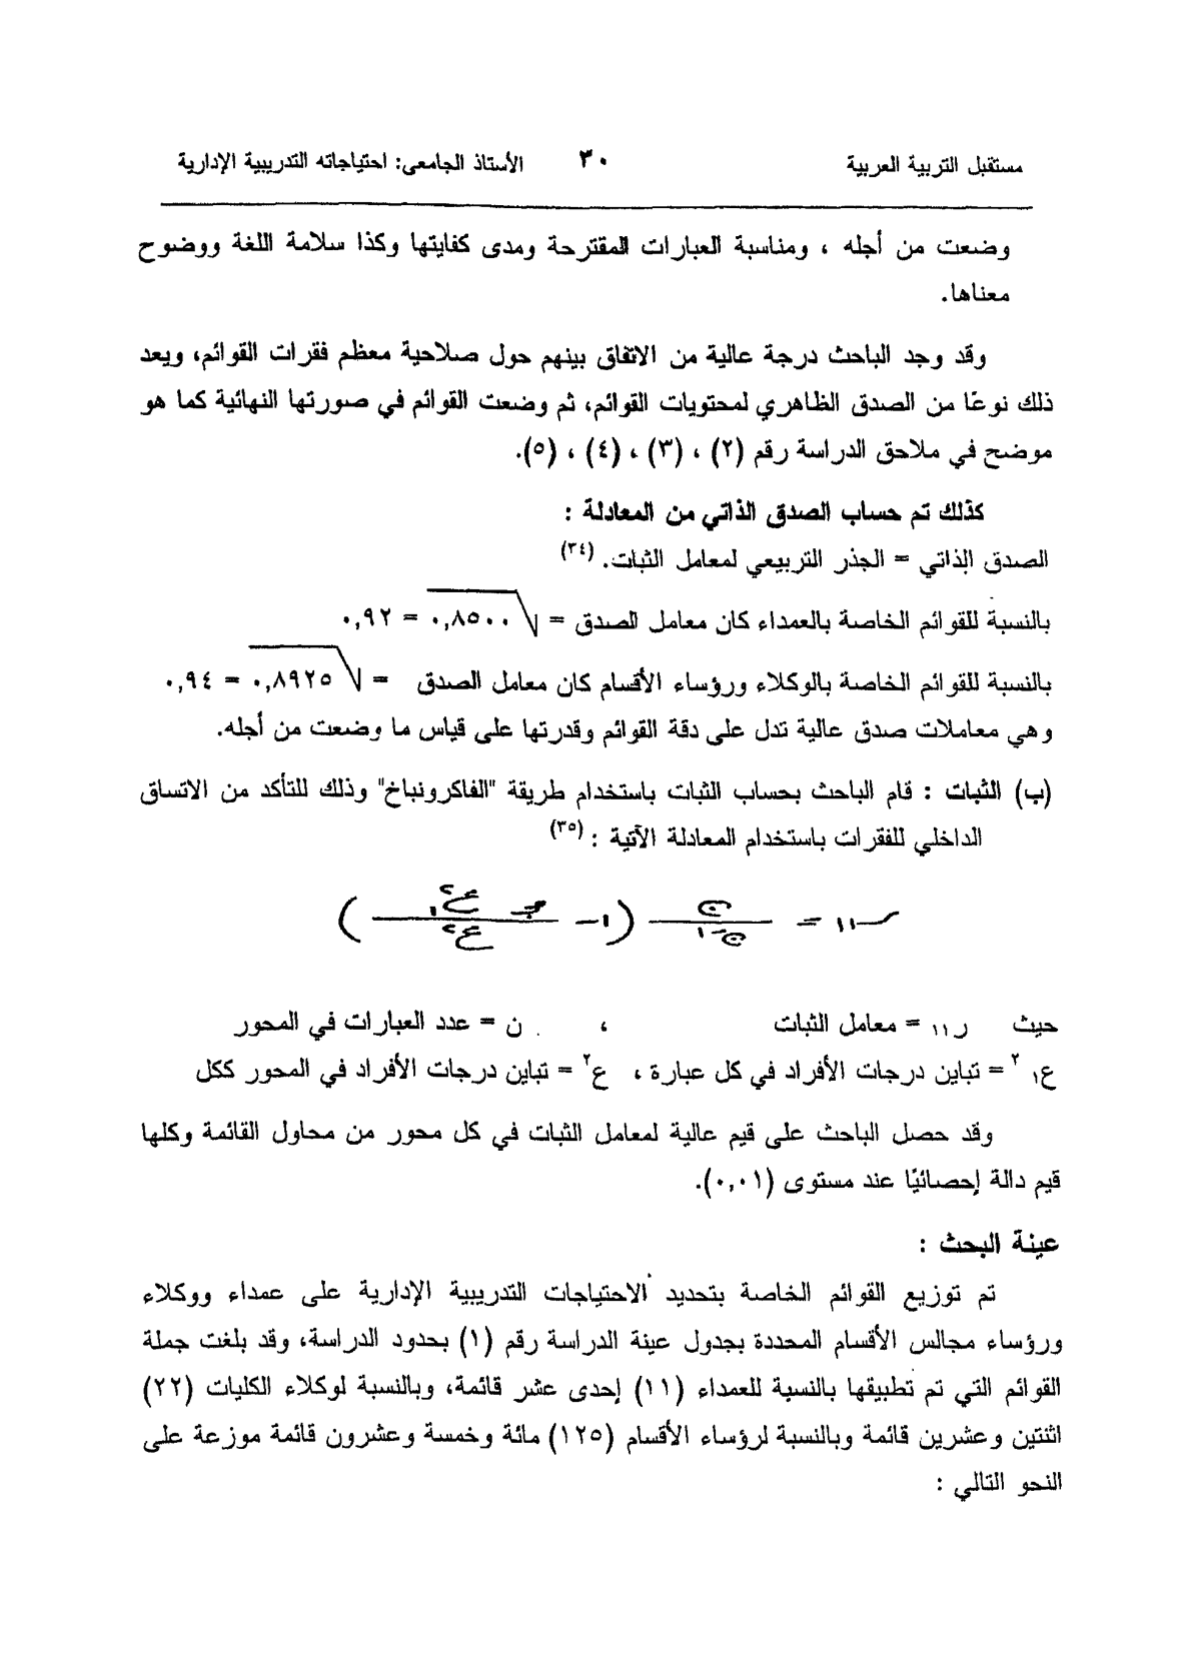 مستقبل التربية العربية ٣٠ الأستاذ الجامعى: احتياجاته التدريبية الإدارية
وضعت من أجله ، ومناسبة العبارات المقترحة ومدى كفايتها وكذا سلامة اللغة ووضوح
معناها.
وقد وجد الباحث درجة عالية من الاتفاق بينهم حول صلاحية معظم فقرات القوائم، ويعد
ذلك نوعًا من الصدق الظاهري لمحتويات القوائم، ثم وضعت القوائم في صورتها النهائية كما هو
موضح في ملاحق الدراسة رقم (٢) ، (٣) ، (٤) ، (٥).
كذلك تم حساب الصدق الذاتي من المعادلة :
الصدق الذاتي = الجذر التربيعي لمعامل الثبات. (٣٤)
بالنسبة للقوائم الخاصة بالعمداء كان معامل الصدق = √٠,٨٥٠٠ = ٠,٩٢
بالنسبة للقوائم الخاصة بالوكلاء ورؤساء الأقسام كان معامل الصدق = √٠,٨٩٢٥ = ٠,٩٤
وهي معاملات صدق عالية تدل على دقة القوائم وقدرتها على قياس ما وضعت من أجله.
(ب) الثبات : قام الباحث بحساب الثبات باستخدام طريقة "الفاكرونباخ" وذلك للتأكد من الاتساق
الداخلي للفقرات باستخدام المعادلة الآتية : (٣٥)
ر١١ = ن / ن-١ (١ - مجـ ع٢١ / ع٢)
حيث ر١١ = معامل الثبات ، ن = عدد العبارات في المحور
ع١٢ = تباين درجات الأفراد في كل عبارة ، ع٢ = تباين درجات الأفراد في المحور ككل
وقد حصل الباحث على قيم عالية لمعامل الثبات في كل محور من محاول القائمة وكلها
قيم دالة إحصائيًا عند مستوى (٠,٠١).
عينة البحث :
تم توزيع القوائم الخاصة بتحديد الاحتياجات التدريبية الإدارية على عمداء ووكلاء
ورؤساء مجالس الأقسام المحددة بجدول عينة الدراسة رقم (١) بحدود الدراسة، وقد بلغت جملة
القوائم التي تم تطبيقها بالنسبة للعمداء (١١) إحدى عشر قائمة، وبالنسبة لوكلاء الكليات (٢٢)
اثنتين وعشرين قائمة وبالنسبة لرؤساء الأقسام (١٢٥) مائة وخمسة وعشرون قائمة موزعة على
النحو التالي :